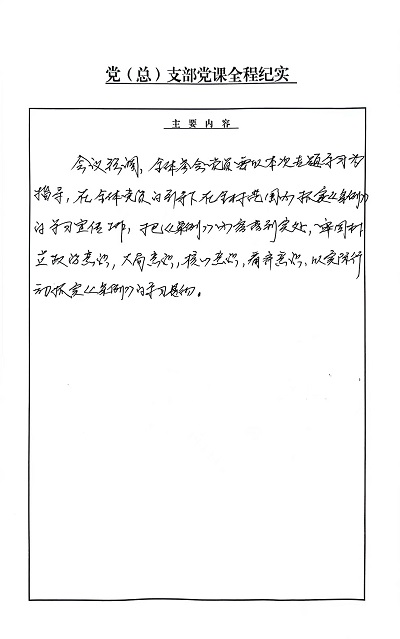 党（总）支部党课全程纪实
主要内容
会议强调，全体参会党员要以本次专题学习为
指导，在全体党员的引导下在全村范围内抓实《条例》
的学习宣传工作，把《条例》内容落到实处，牢固树
立政治意识，大局意识，核心意识，看齐意识，以实际行
动抓实《条例》的学习活动。